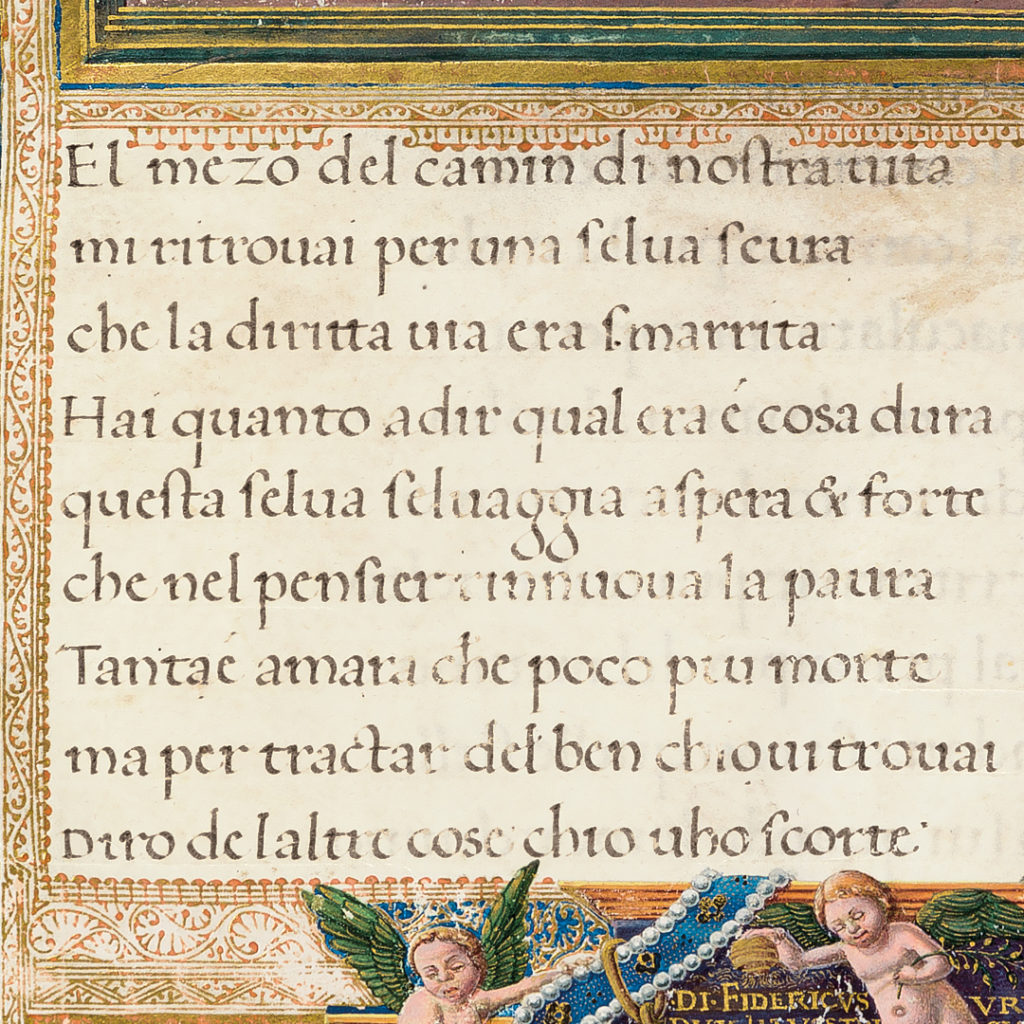 El mezo del camin di noſtra uita
mi ritrouai per una ſelua ſcura
che la diritta uia era ſmarrita
Hai quanto adir qual era é cosa dura
queſta ſelua ſeluaggia aſpera & forte
che nel penſier rinnuoua la paura
Tantaé amara che poco piu morte
ma per tractar del ben chioui trouai
Diro delaltre cose chio uho ſcorte.
DI·FIDERICVS
VR